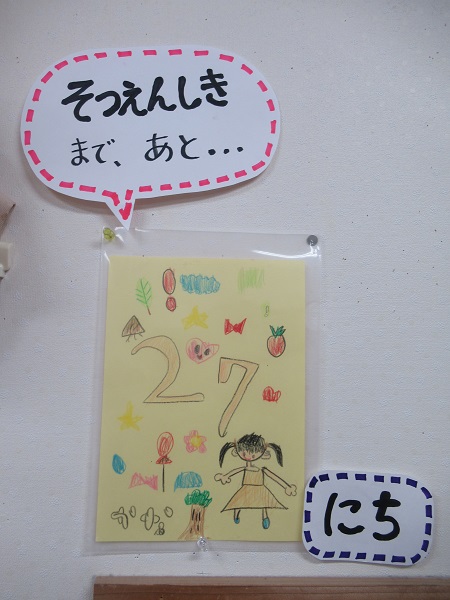 そつえんしき
まで、あと...
27
にち